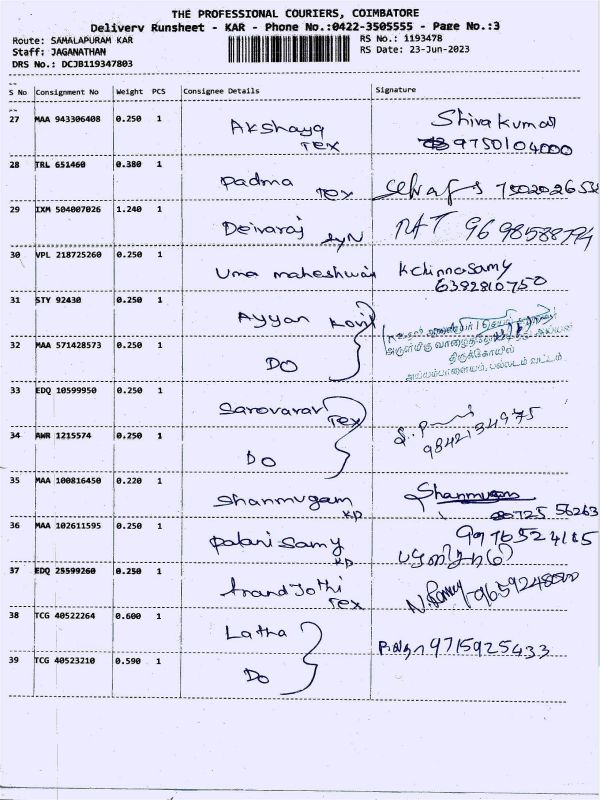 THE PROFESSIONAL COURIERS, COIMBATORE
Delivery Runsheet - KAR - Phone No.:0422-3505555 - Page No.:3
Route: SAMALAPURAM KAR
RS No.: 1193478
Staff: JAGANATHAN
RS Date: 23-Jun-2023
DRS No.: DCJB119347803
S No Consignment No Weight PCS Consignee Details Signature
27 MAA 943306408 0.250 1 Akshaya Tex Shivakumar
9750104000
28 TRL 651460 0.380 1 Padma Tex
29 IXM 504007026 1.240 1 Deivaraj
30 VPL 218725260 0.250 1 Uma maheshwari K chinnasamy
6382810750
31 STY 92430 0.250 1 Ayyan Kovil
32 MAA 571428573 0.250 1 DO
திருக்கோயில்
அய்யம்பாளையம், பல்லடம் வட்டம்.
33 EDQ 10599950 0.250 1 Sarovarar Tex
9842134975
34 AWR 1215574 0.250 1 DO
35 MAA 100816450 0.220 1 Shanmugam KP Shanmugam
72556263
36 MAA 102611595 0.250 1 Palani Samy KP 9976524115
பழனிசாமி
37 EDQ 25599260 0.250 1 Anand Jothi Tex
38 TCG 40522264 0.600 1 Latha
9715925433
39 TCG 40523210 0.590 1 DO